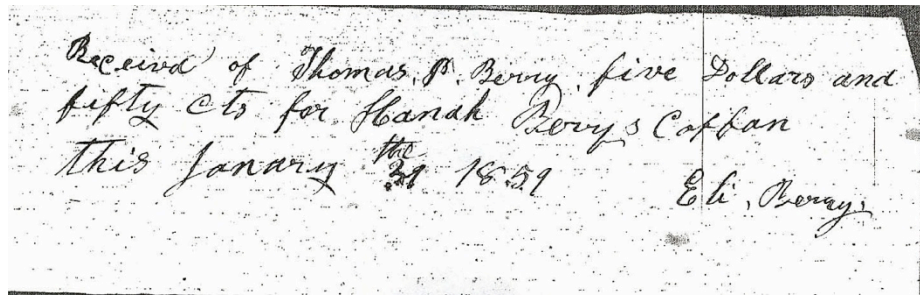 Receivd of Thomas. P. Berry five Dollars and
fifty Cts for Hanah Berrys Coffan
this Janary the 31 1859
Eli. Berry